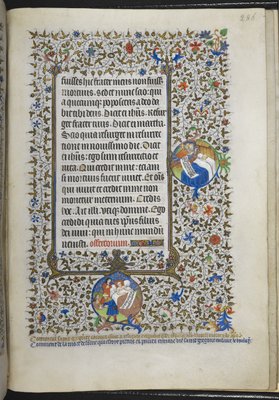 fuisses hic frater meus non fuiss;
mortuus. Sed et nunc scio: qui
a quecunque poposceris a deo da
bit tibi deus. Dicit ei ihus. Resur
get frater tuus. Dicit ei martha.
Scio quia resurget in resurrecti
one in nouissimo die. Dicit
ei ihus: ego sum resurrectio et
uita. Qui credit in me: etiam
si mortuus fuerit uiuet. Et omis
qui uiuit et credit in me non
morietur in eternum. Credis
hoc. Ait illi. utiq; domine. Ego
credidi quia tu es xpus filius
dei uiui: qui in hunc mundu
uenisti. offertorium.